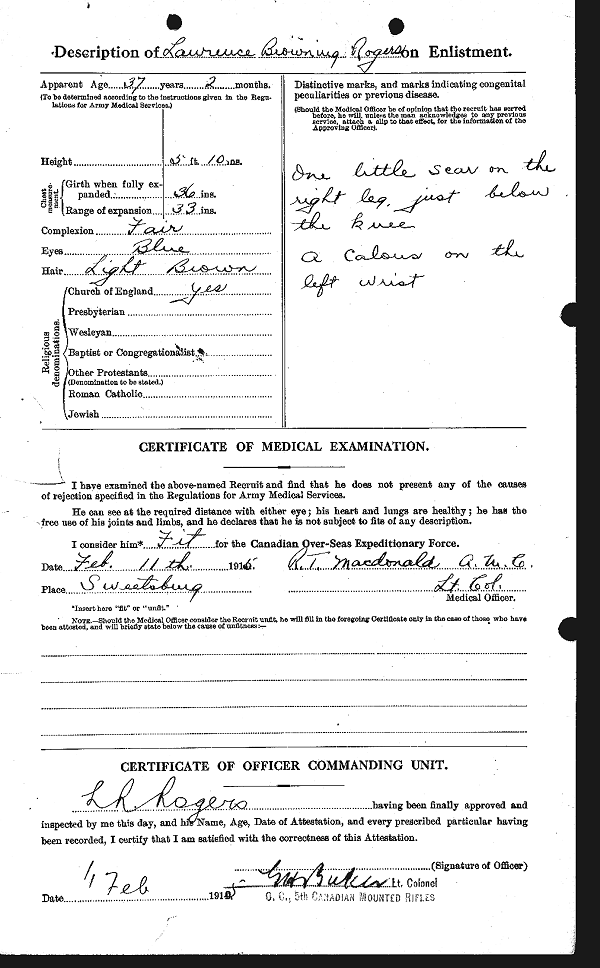 Description of Lawrence Browning Rogers on Enlistment.
Apparent Age 37 years 2 months.
(To be determined according to the instructions given in the Regulations for Army Medical Services.)
Height 5 ft. 10 ins.
Chest measurement.
Girth when fully expanded 36 ins.
Range of expansion 33 ins.
Complexion Fair
Eyes Blue
Hair Light Brown
Religious denominations.
Church of England yes
Presbyterian
Wesleyan
Baptist or Congregationalist
Other Protestants
(Denomination to be stated.)
Roman Catholic
Jewish
Distinctive marks, and marks indicating congenital
peculiarities or previous disease.
(Should the Medical Officer be of opinion that the recruit has served
before, he will, unless the man acknowledges to any previous
service, attach a slip to that effect, for the information of the
Approving Officer).
One little scar on the
right leg, just below
the knee
a Calous on the
left wrist
CERTIFICATE OF MEDICAL EXAMINATION.
I have examined the above-named Recruit and find that he does not present any of the causes
of rejection specified in the Regulations for Army Medical Services.
He can see at the required distance with either eye; his heart and lungs are healthy; he has the
free use of his joints and limbs, and he declares that he is not subject to fits of any description.
I consider him* Fit for the Canadian Over-Seas Expeditionary Force.
Date Feb. 11th 1915. R.T. Macdonald A.M.C.
Place Sweetsburg Lt. Col.
Medical Officer.
*Insert here "fit" or "unfit."
NOTE.—Should the Medical Officer consider the Recruit unfit, he will fill in the foregoing Certificate only in the case of those who have
been attested, and will briefly state below the cause of unfitness:—
CERTIFICATE OF OFFICER COMMANDING UNIT.
Rogers having been finally approved and
inspected by me this day, and his Name, Age, Date of Attestation, and every prescribed particular having
been recorded, I certify that I am satisfied with the correctness of this Attestation.
(Signature of Officer)
Lt. Colonel
Date Feb 191
O. C., 5th CANADIAN MOUNTED RIFLES